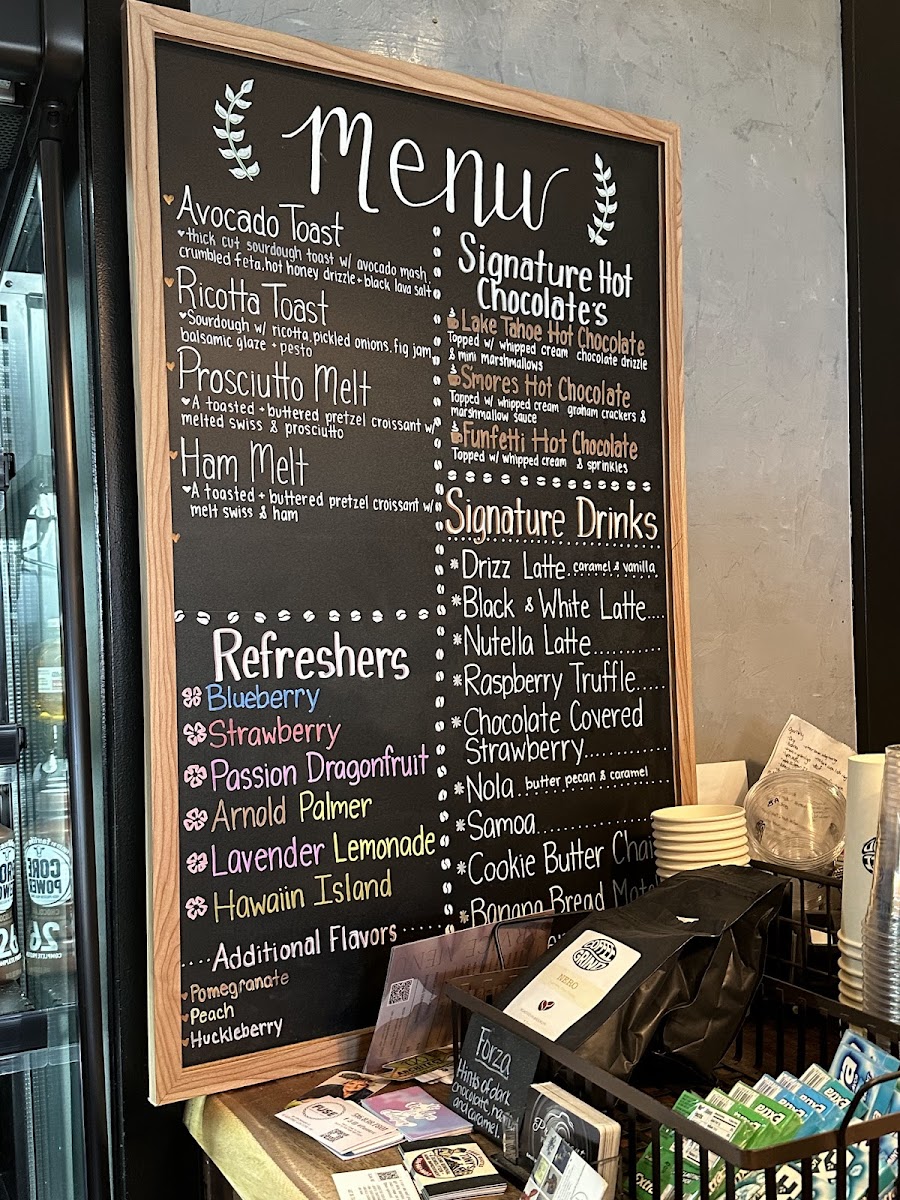 Menu
Avocado Toast
thick cut sourdough toast w/ avocado mash,
crumbled feta, hot honey drizzle + black lava salt
Ricotta Toast
Sourdough w/ ricotta, pickled onions, fig jam,
balsamic glaze + pesto
Prosciutto Melt
A toasted + buttered pretzel croissant w/
melted swiss & prosciutto
Ham Melt
A toasted + buttered pretzel croissant w/
melt swiss & ham
Refreshers
Blueberry
Strawberry
Passion Dragonfruit
Arnold Palmer
Lavender Lemonade
Hawaiin Island
Additional Flavors
Pomegranate
Peach
Huckleberry
Signature Hot
Chocolate's
Lake Tahoe Hot Chocolate
Topped w/ whipped cream chocolate drizzle
& mini marshmallows
Smores Hot Chocolate
Topped w/ whipped cream graham crackers &
marshmallow sauce
Funfetti Hot Chocolate
Topped w/ whipped cream & sprinkles
Signature Drinks
Drizz Latte..caramel & vanilla
Black & White Latte....
Nutella Latte..........
Raspberry Truffle.....
Chocolate Covered
Strawberry............
Nola..butter pecan & caramel
Samoa..............
Cookie Butter Chai
Banana Bread
COFFEE
GRIND
NERO
Forza
Hints of dark
chocolate,
and caramel.
FUSE
CORE
POWER
26
26
extra
extra